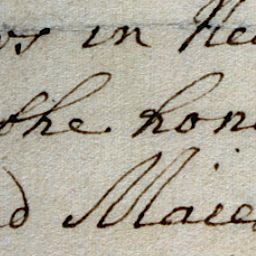 ws in hea
the hono
d Maies